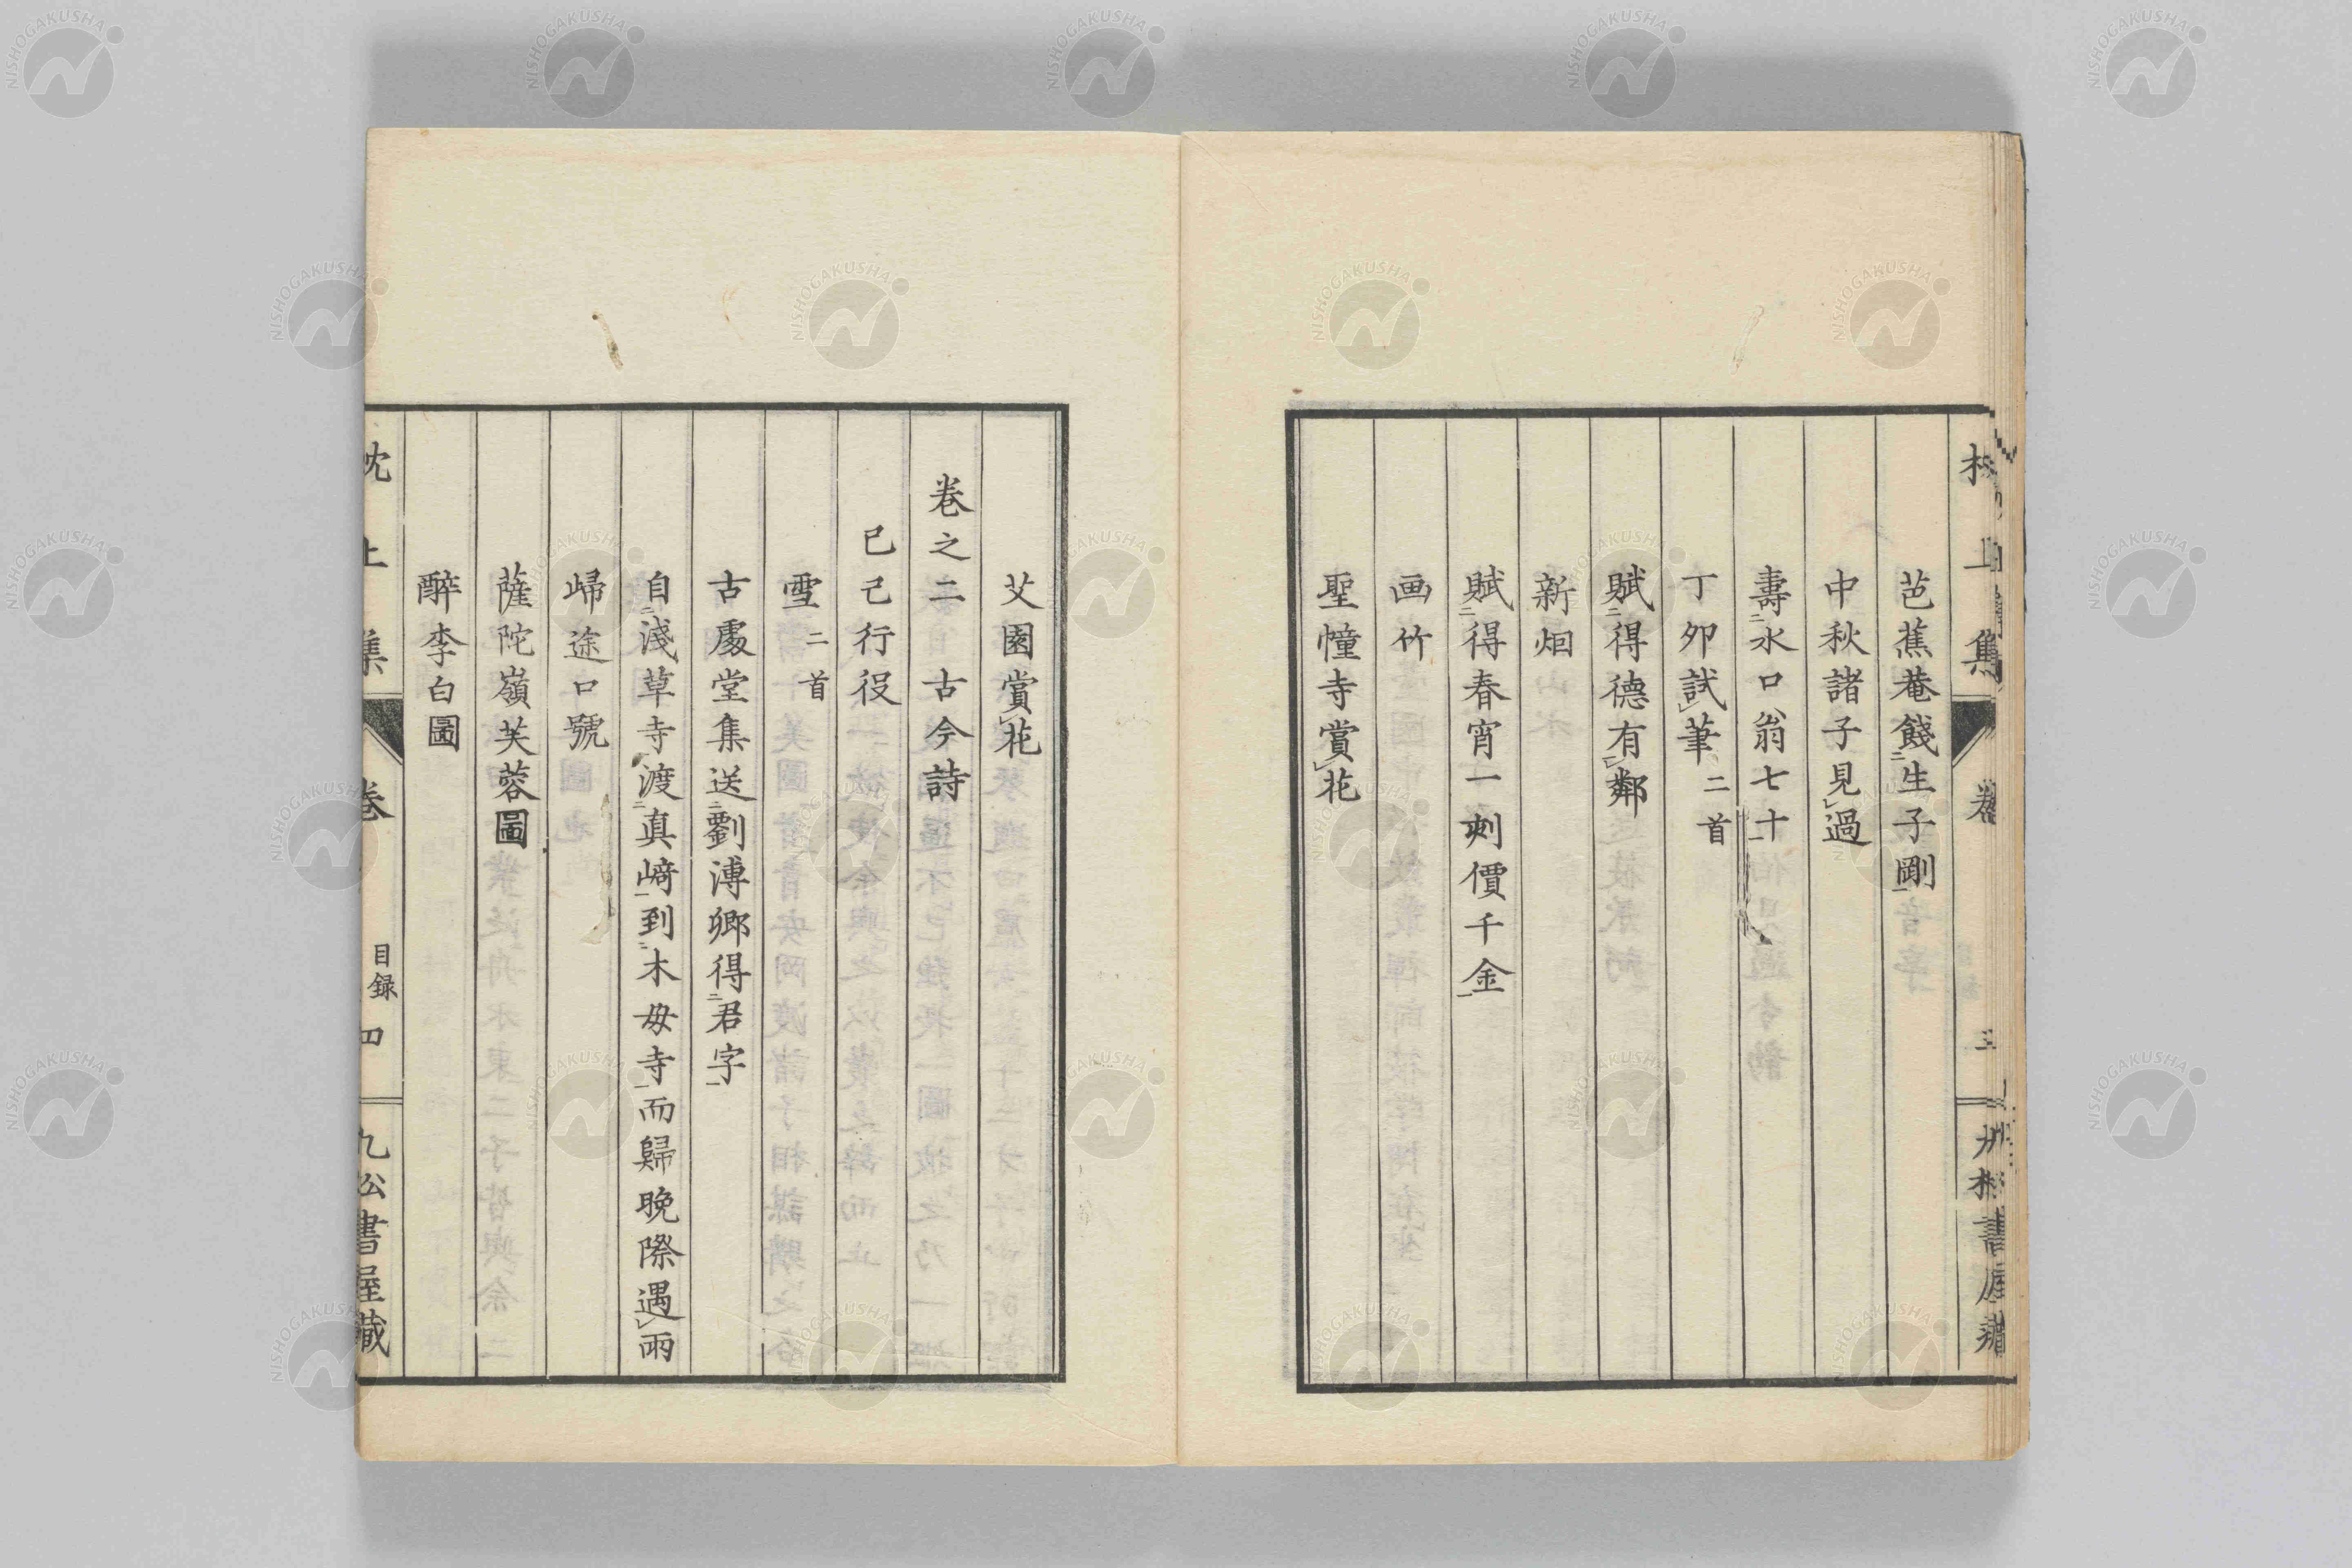 芭蕉菴餞生子剛
中秋諸子見過
壽水口翁七十
丁卯試筆 二首
賦得德有鄰
新烟
賦得春宵一刻價千金
画竹
聖幢寺賞花
艾園賞花
卷之二 古今詩
己己行役
雪 二首
古處堂集送劉溥卿得君字
自淺草寺渡真﨑到木母寺而歸晚際遇雨
歸途口號
薩陀嶺芙蓉圖
醉李白圖
枕上集 卷 目録 四 九松書屋藏
NISHOGAKUSHA